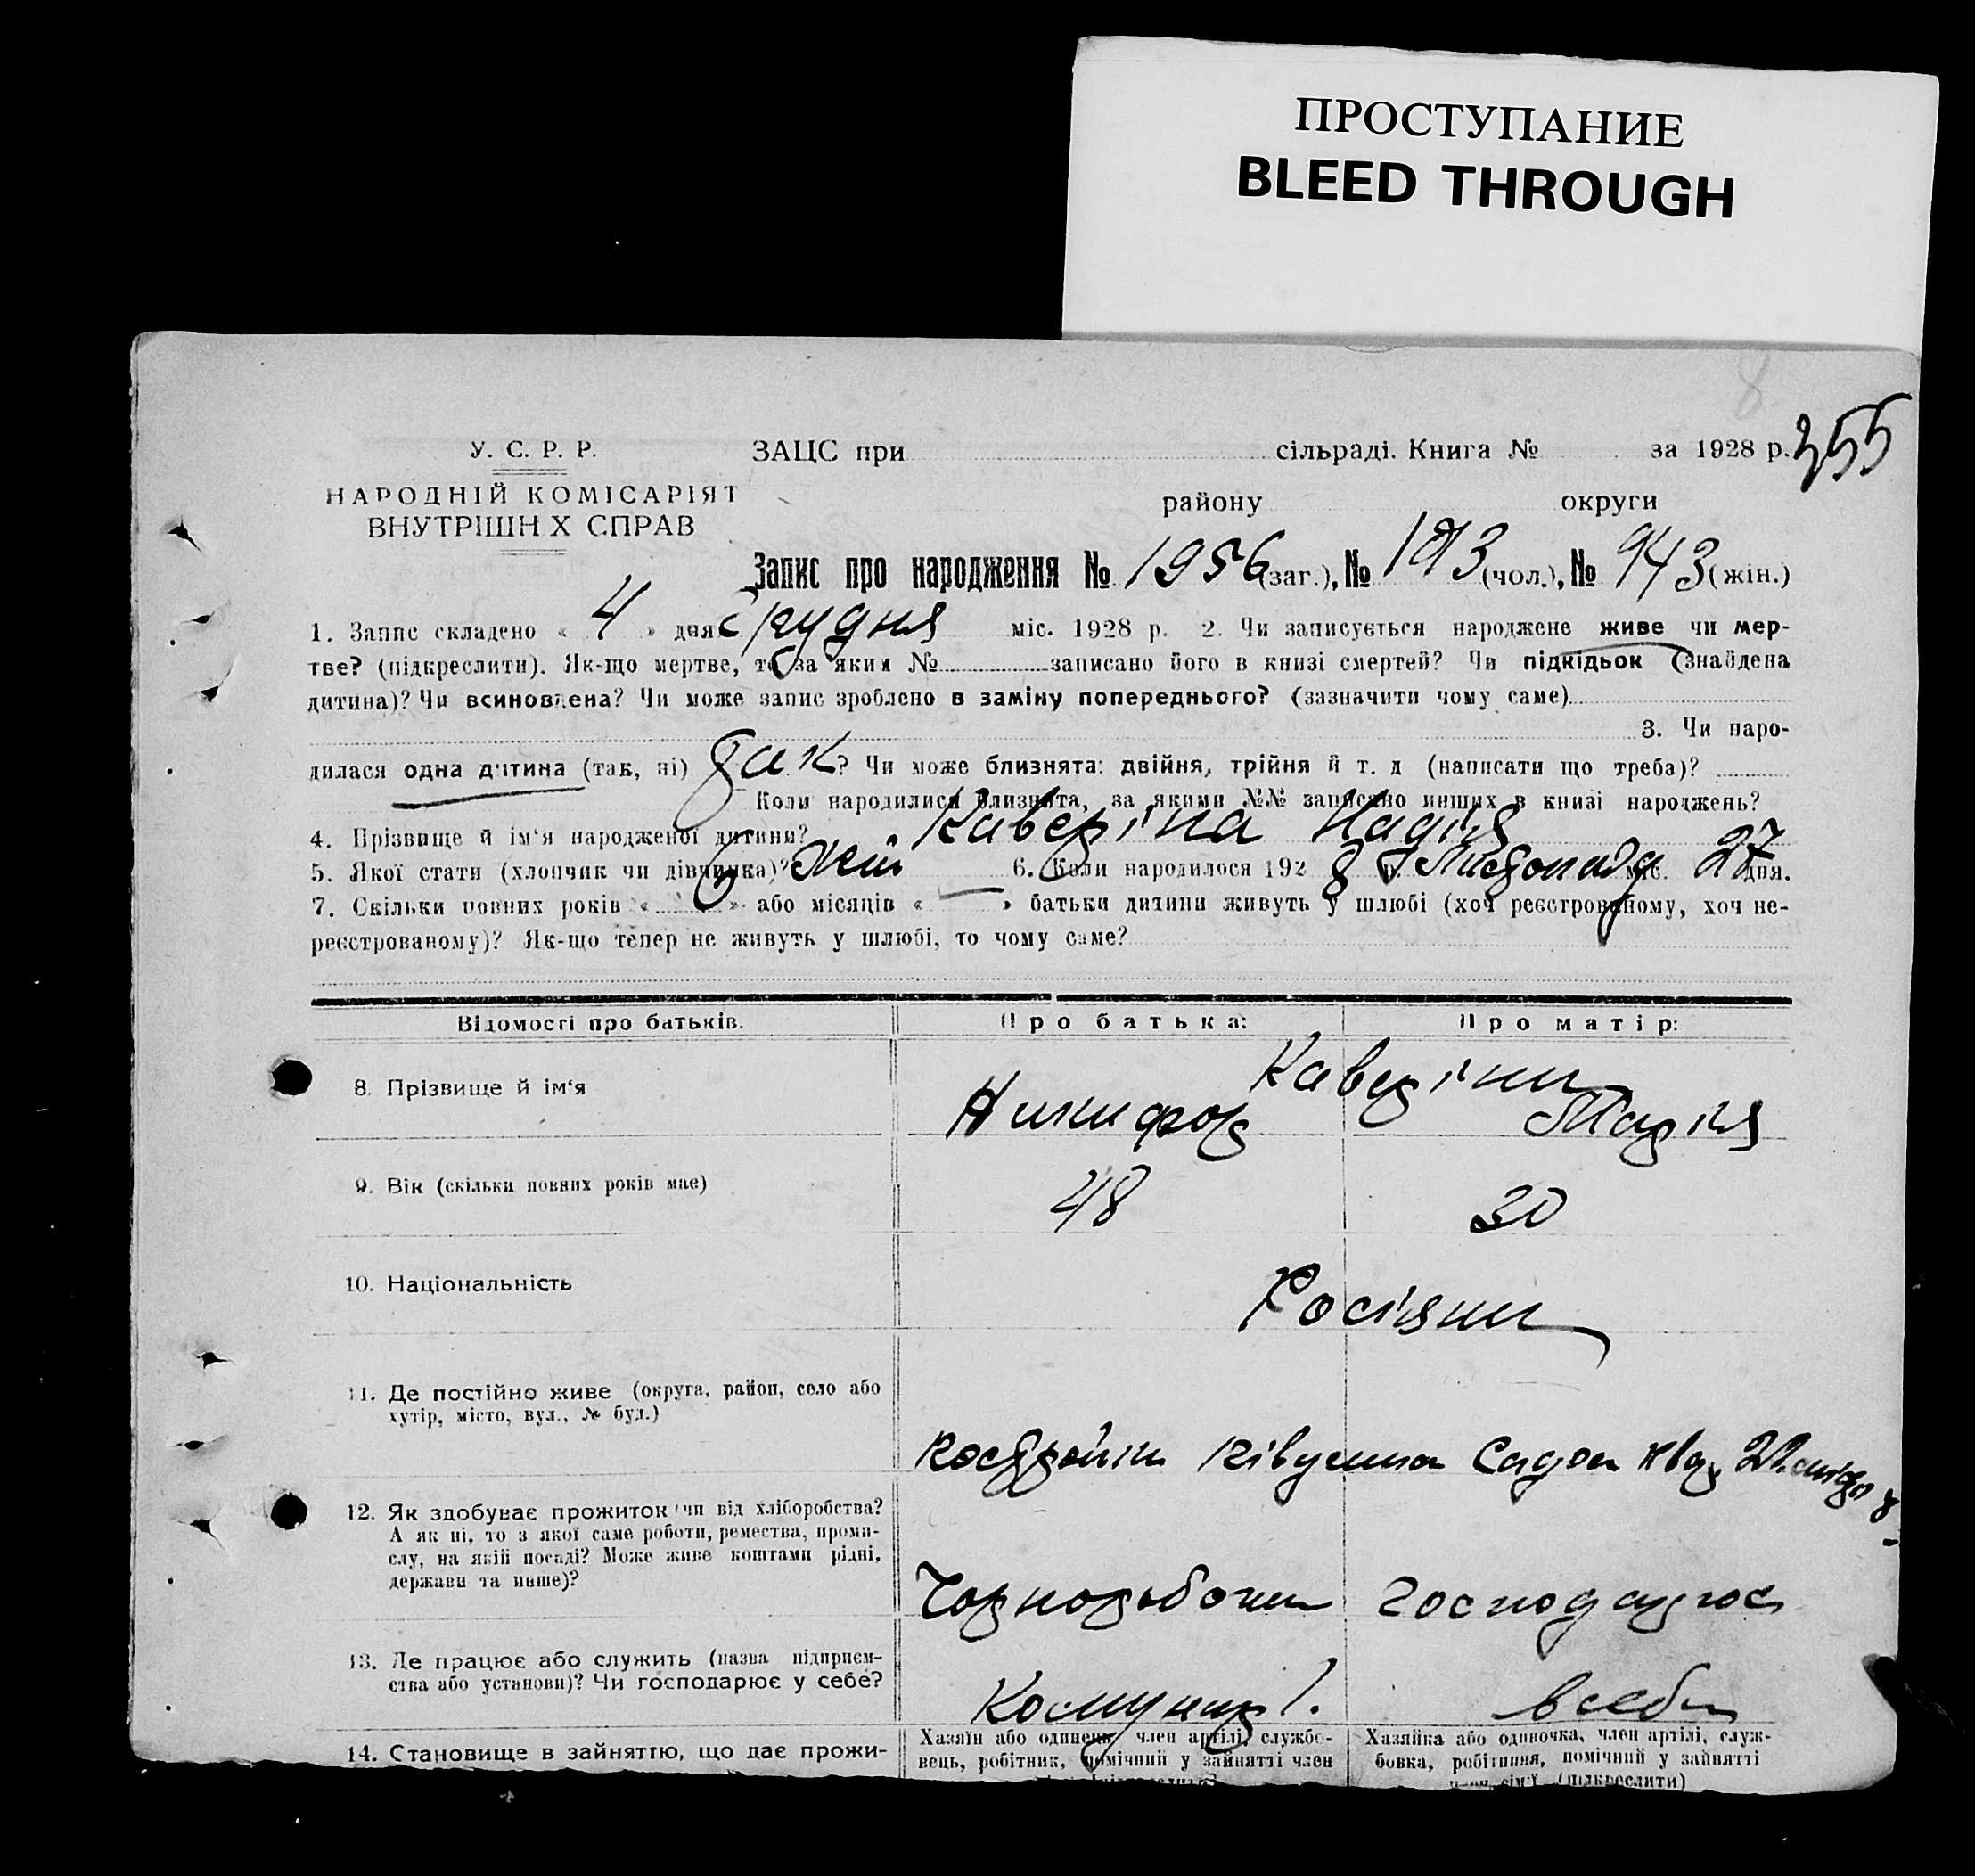 ПРОСТУПАНИЕ
BLEED THROUGH
8
355
У. С. Р. Р.
ЗАЦС при сільраді. Книга № за 1928 р.
НАРОДНІЙ КОМІСАРІЯТ
ВНУТРІШН Х СПРАВ
району округи
Запис про народження № 1956 (заг.), № 1013 (чол.), № 943 (жін.)
1. Запис складено « 4 » дня Грудня міс. 1928 р. 2. Чи записується народжене живе чи мер-
тве? (підкреслити). Як-що мертве, то за яким № записано його в книзі смертей? Чи підкідьок (знайдена
дитина)? Чи всиновлена? Чи може запис зроблено в заміну попереднього? (зазначити чому саме)
3. Чи наро-
дилася одна дитина (так, ні) Так? Чи може близнята: двійня, трійня й т. д (написати що треба)?
Коли народилися близнята, за якими №№ записано инших в книзі народжень?
4. Прізвище й ім'я народженої дитини? Каверіна Надія
5. Якої стати (хлопчик чи дівчинка)? Жін 6. Коли народилося 192 8 р. Листопада міс. 27 дня.
7. Скільки повних років « » або місяців « — » батьки дитини живуть у шлюбі (хоч реєстрованому, хоч не-
реєстрованому)? Як-що тепер не живуть у шлюбі, то чому саме?
Відомості про батьків. Про батька: Про матір:
8. Прізвище й ім'я Каверіни
Никифор Марія
9. Вік (скільки повних років має) 48 30
10. Національність Росіяни
11. Де постійно живе (округа, район, село або
хутір, місто, вул., № буд.)
12. Як здобуває прожиток чи від хліборобства?
А як ні, то з якої саме роботи, ремества, проми-
слу, на якій посаді? Може живе коштами рідні,
держави та инше)?
Чорноробочий Господарює
13. Де працює або служить (назва підприєм-
ства або установи)? Чи господарює у себе?
Комунгр. в себе
14. Становище в зайняттю, що дає прожи-
Хазяїн або одинець, член артілі, службо-
вець, робітник, помічний у зайнятті член
Хазяйка або одиночка, член артілі, служ-
бовка, робітниця, помічний у зайнятті
член сім'ї (підкреслити)